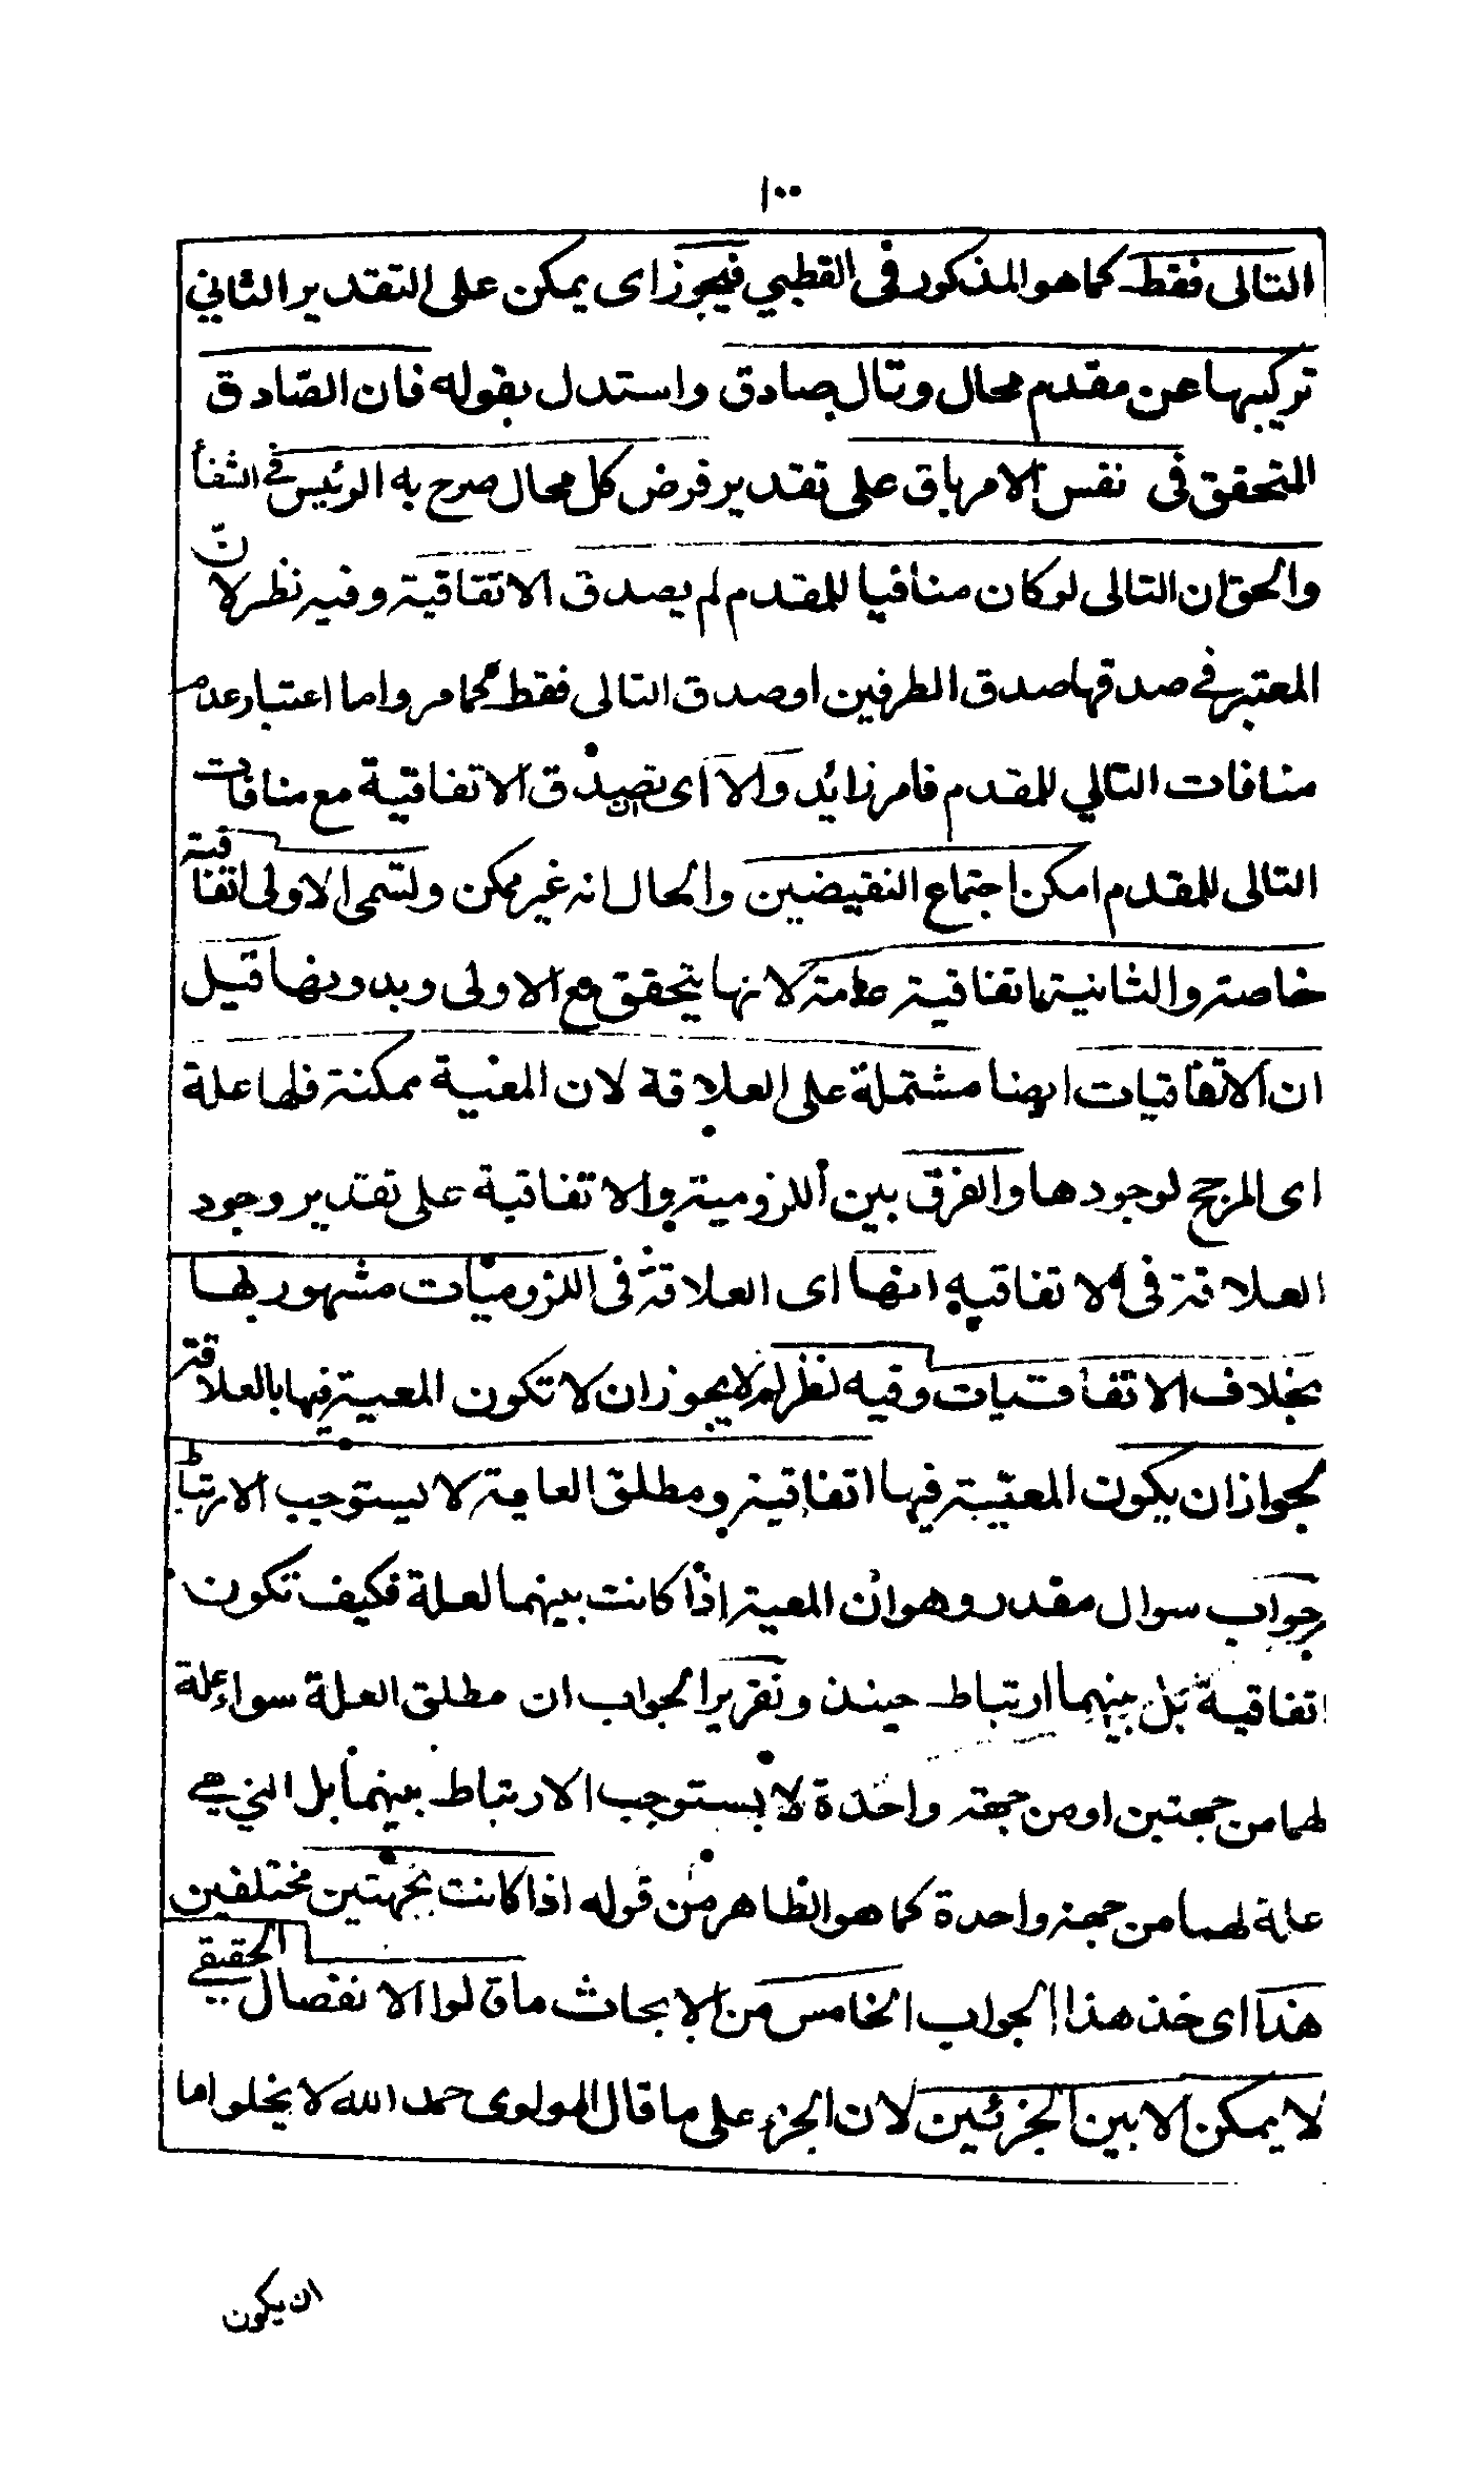 ١٠٠
التالى فقط كما هو المذكور فى القطبي فيجوز اى يمكن على التقدير الثاني
تركيبها عن مقدم محال وتال صادق واستدل بقوله فان الصّادق
المتحقق فى نفس الامر باق على تقدير فرض كل محال صرح به الرئيس فے الشفأ
والحق ان التالى لو كان منافيا للمقدم لم يصدق الاتفاقية وفيه نظر لانّ
المعتبر فے صدقها صدق الطرفين او صدق التالى فقط كمامر واما اعتبار عدم
منافات التالي للمقدم فامر زائد والا اى تصدق الاتفاقية مع منافات
التالى للمقدم امكن اجتماع النقيضين والحال انه غير ممكن ولتسمى الاولى اتفاقية
خاصة والثانية اتفاقية عامة لانها يتحقق مع الاولى وبدونها قيل
ان الاتفاقيات ايضا مشتملة على العلاقة لان المعية ممكنة فلها علة
اى المرجح لوجودها والفرق بين اللزومية والاتفاقية على تقدير وجود
العلاقة فى الاتفاقيه انها اى العلاقة فى اللزوميات مشهور بها
بخلاف الاتفاقيات وفيه نظر لم لا يجوز ان لا تكون المعية فيها بالعلاقة
لجواز ان يكون المعيّة فيها اتفاقية ومطلق العلية لا يستوجب الارتباط
جواب سوال مقدر وهو ان المعية اذا كانت بينهما لعلة فكيف تكون
اتفاقية بل بينهما ارتباط حينئذ وتقرير الجواب ان مطلق العلة سواء علة
لهما من جهتين او من جهة واحدة لا يستوجب الارتباط بينهما بل التي هے
علة لهما من جهة واحدة كما هو الظاهر من قوله اذا كانت بجهتين مختلفين
هذا اى خذ هذا الجواب الخامس من الابحاث ما قالوا الانفصال الحقيقے
لا يمكن الا بين الجزئين لان الجزء على ما قال المولوى حمد الله لا يخلو اما
ان يكون